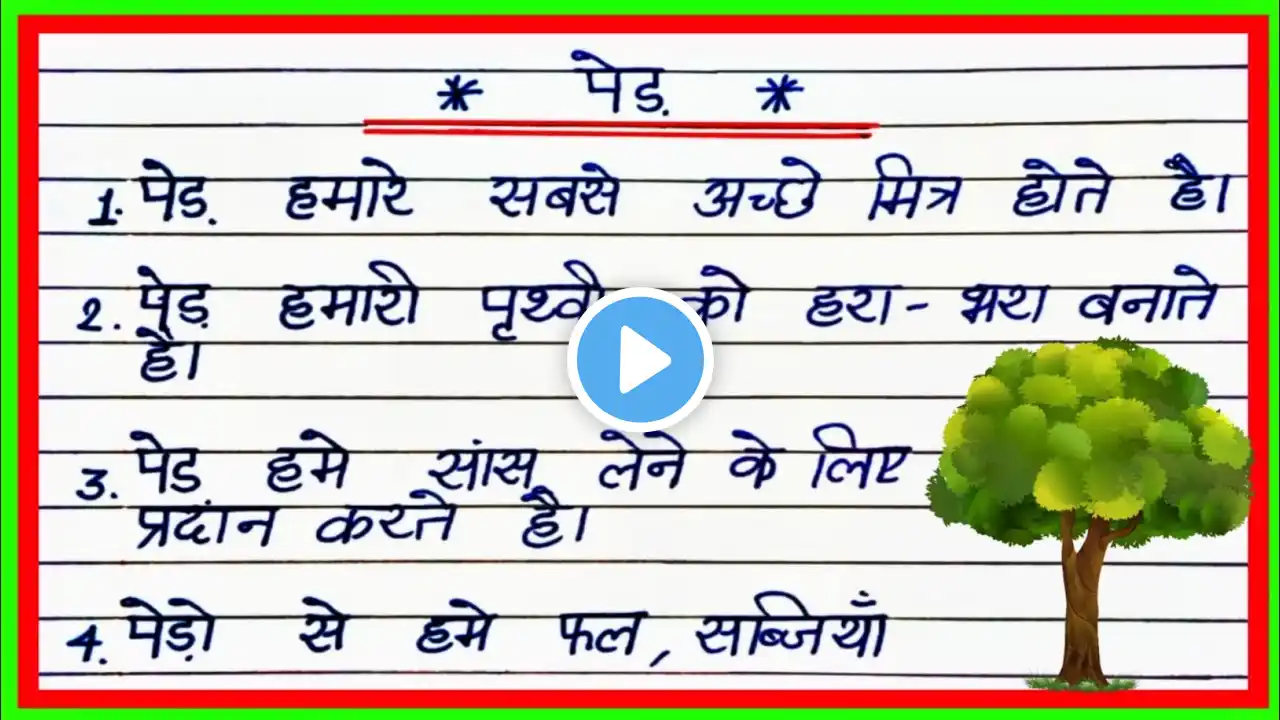 * पेड़ *
1. पेड़ हमारे सबसे अच्छे मित्र होते है।
2. पेड़ हमारी पृथ्वी को हरा - भरा बनाते
है।
3. पेड हमे सांस लेने के लिए
प्रदान करते है।
4. पेड़ो से हमे फल, सब्जियाँ